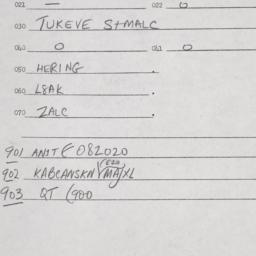 021 — 022 0
030 TUKEVE S+MALC
040 0 041 0
050 HERING .
060 L8AK .
070 ZALC .
901 082020
902 KABCANSKN
903 QT (900